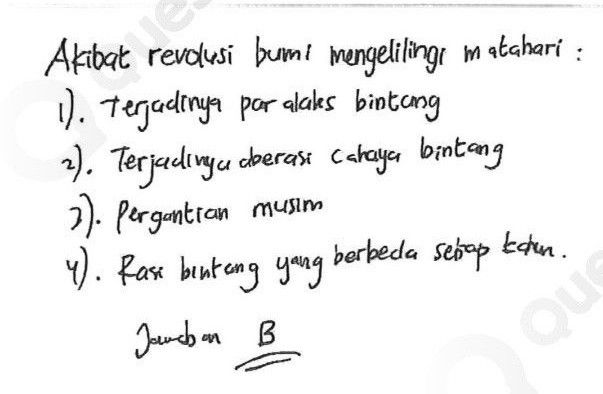 Akibat revolusi bumi mengelilingi matahari :
1). Terjadinya paralaks bintang
2). Terjadinya aberasi cahaya bintang
3). Pergantian musim
4). Rasi bintang yang berbeda setiap tahun.
Jawaban B